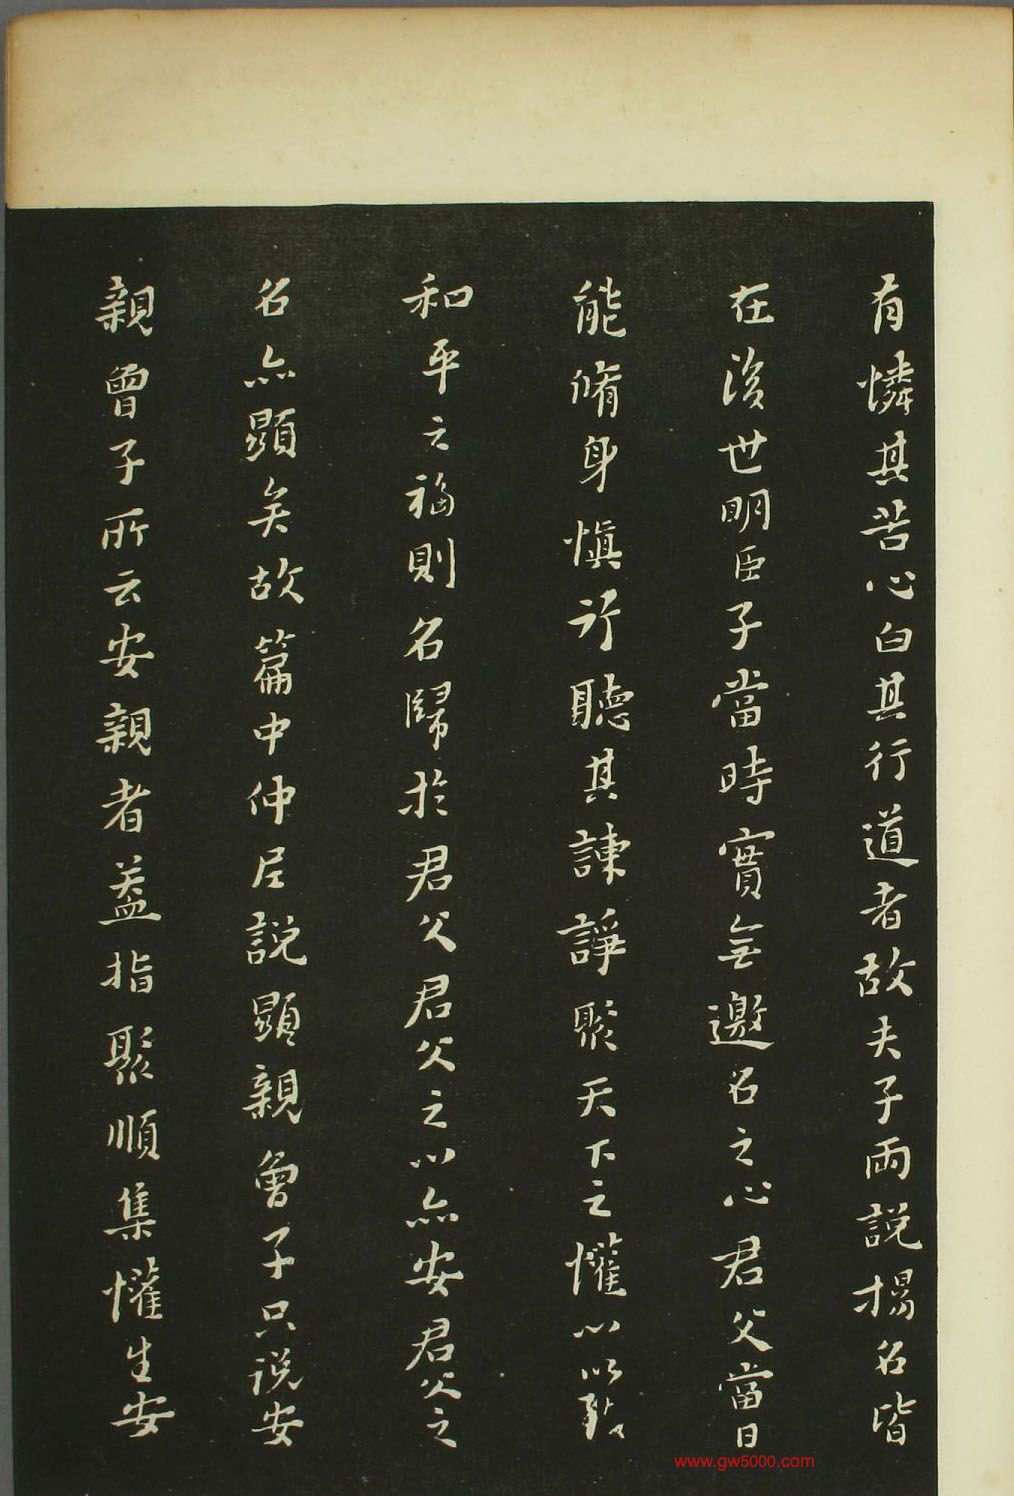 有憐其苦心白其行道者故夫子兩説揚名皆
在後世明臣子當時實無邀名之心君父當日
能脩身慎行聽其諫諍聚天下之懽心以致
和平之福則名歸於君父君父之心亦安君父之
名亦顯矣故篇中仲尼説顯親曾子只説安
親曾子所云安親者蓋指聚順集懽生安
www.gw5000.com